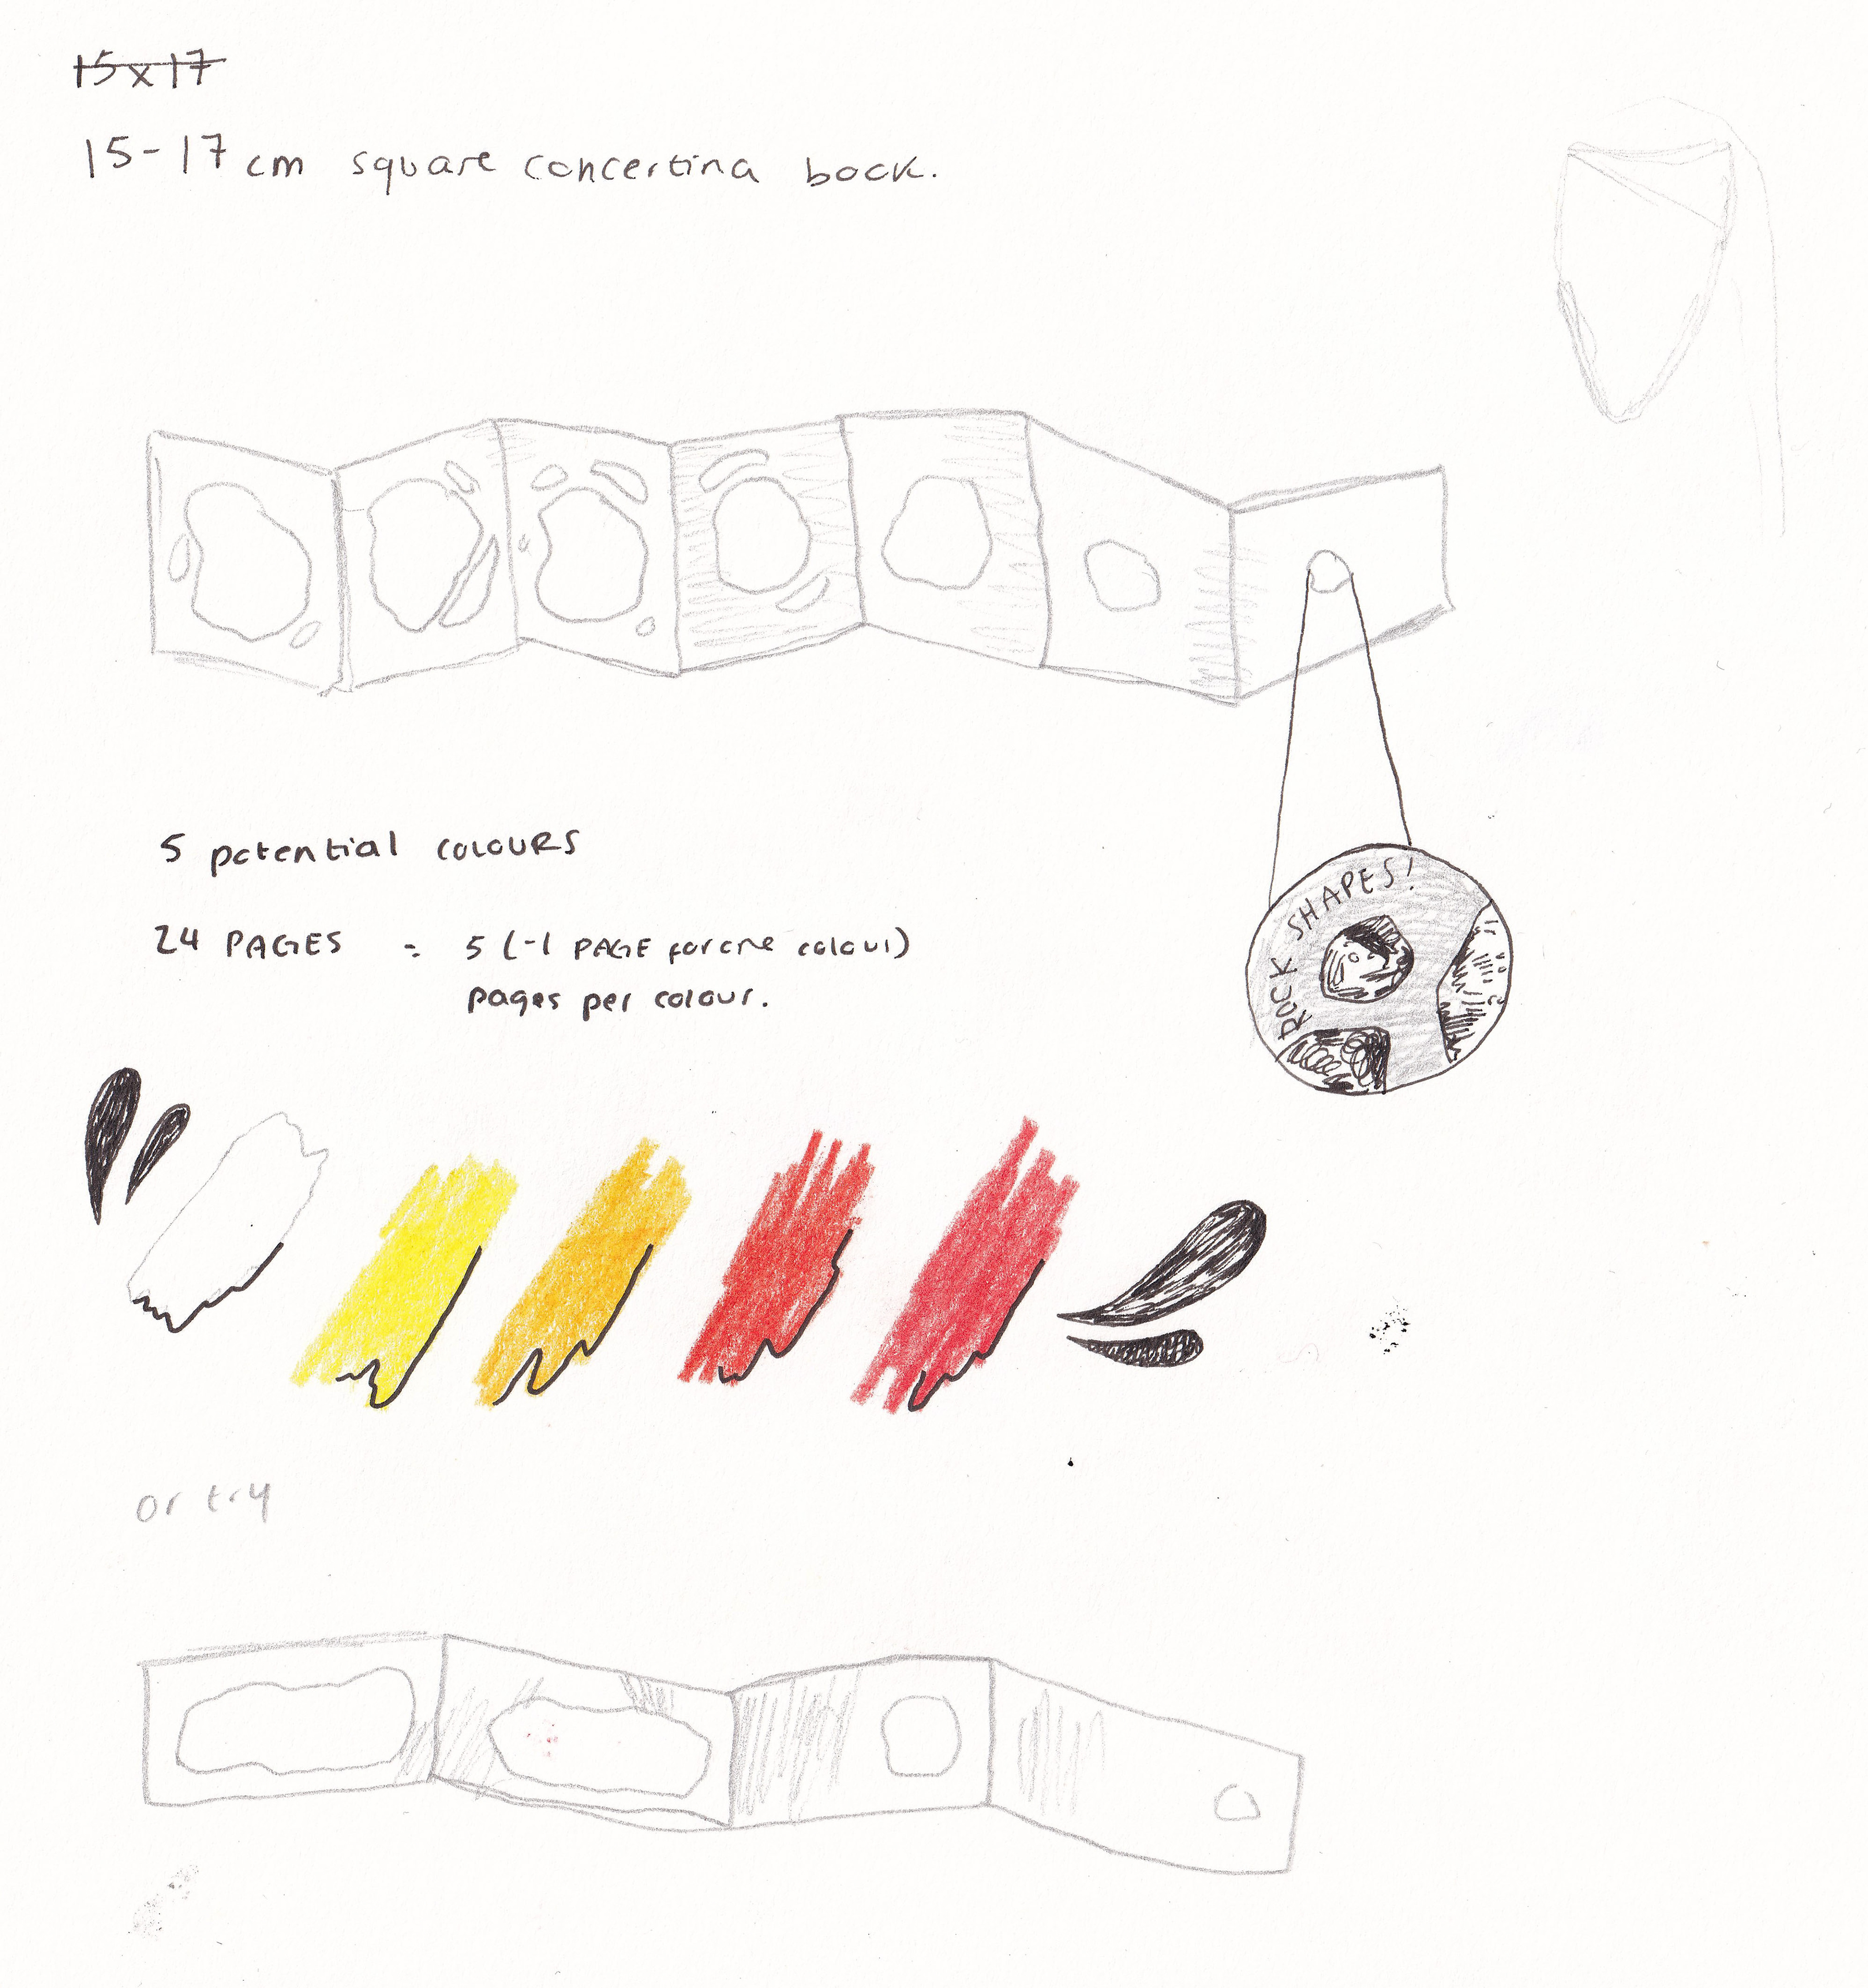 15x17
15-17 cm square concertina book.
5 potential colours
24 PAGES = 5 (-1 PAGE for one colour)
pages per colour.
ROCK SHAPES!
or try